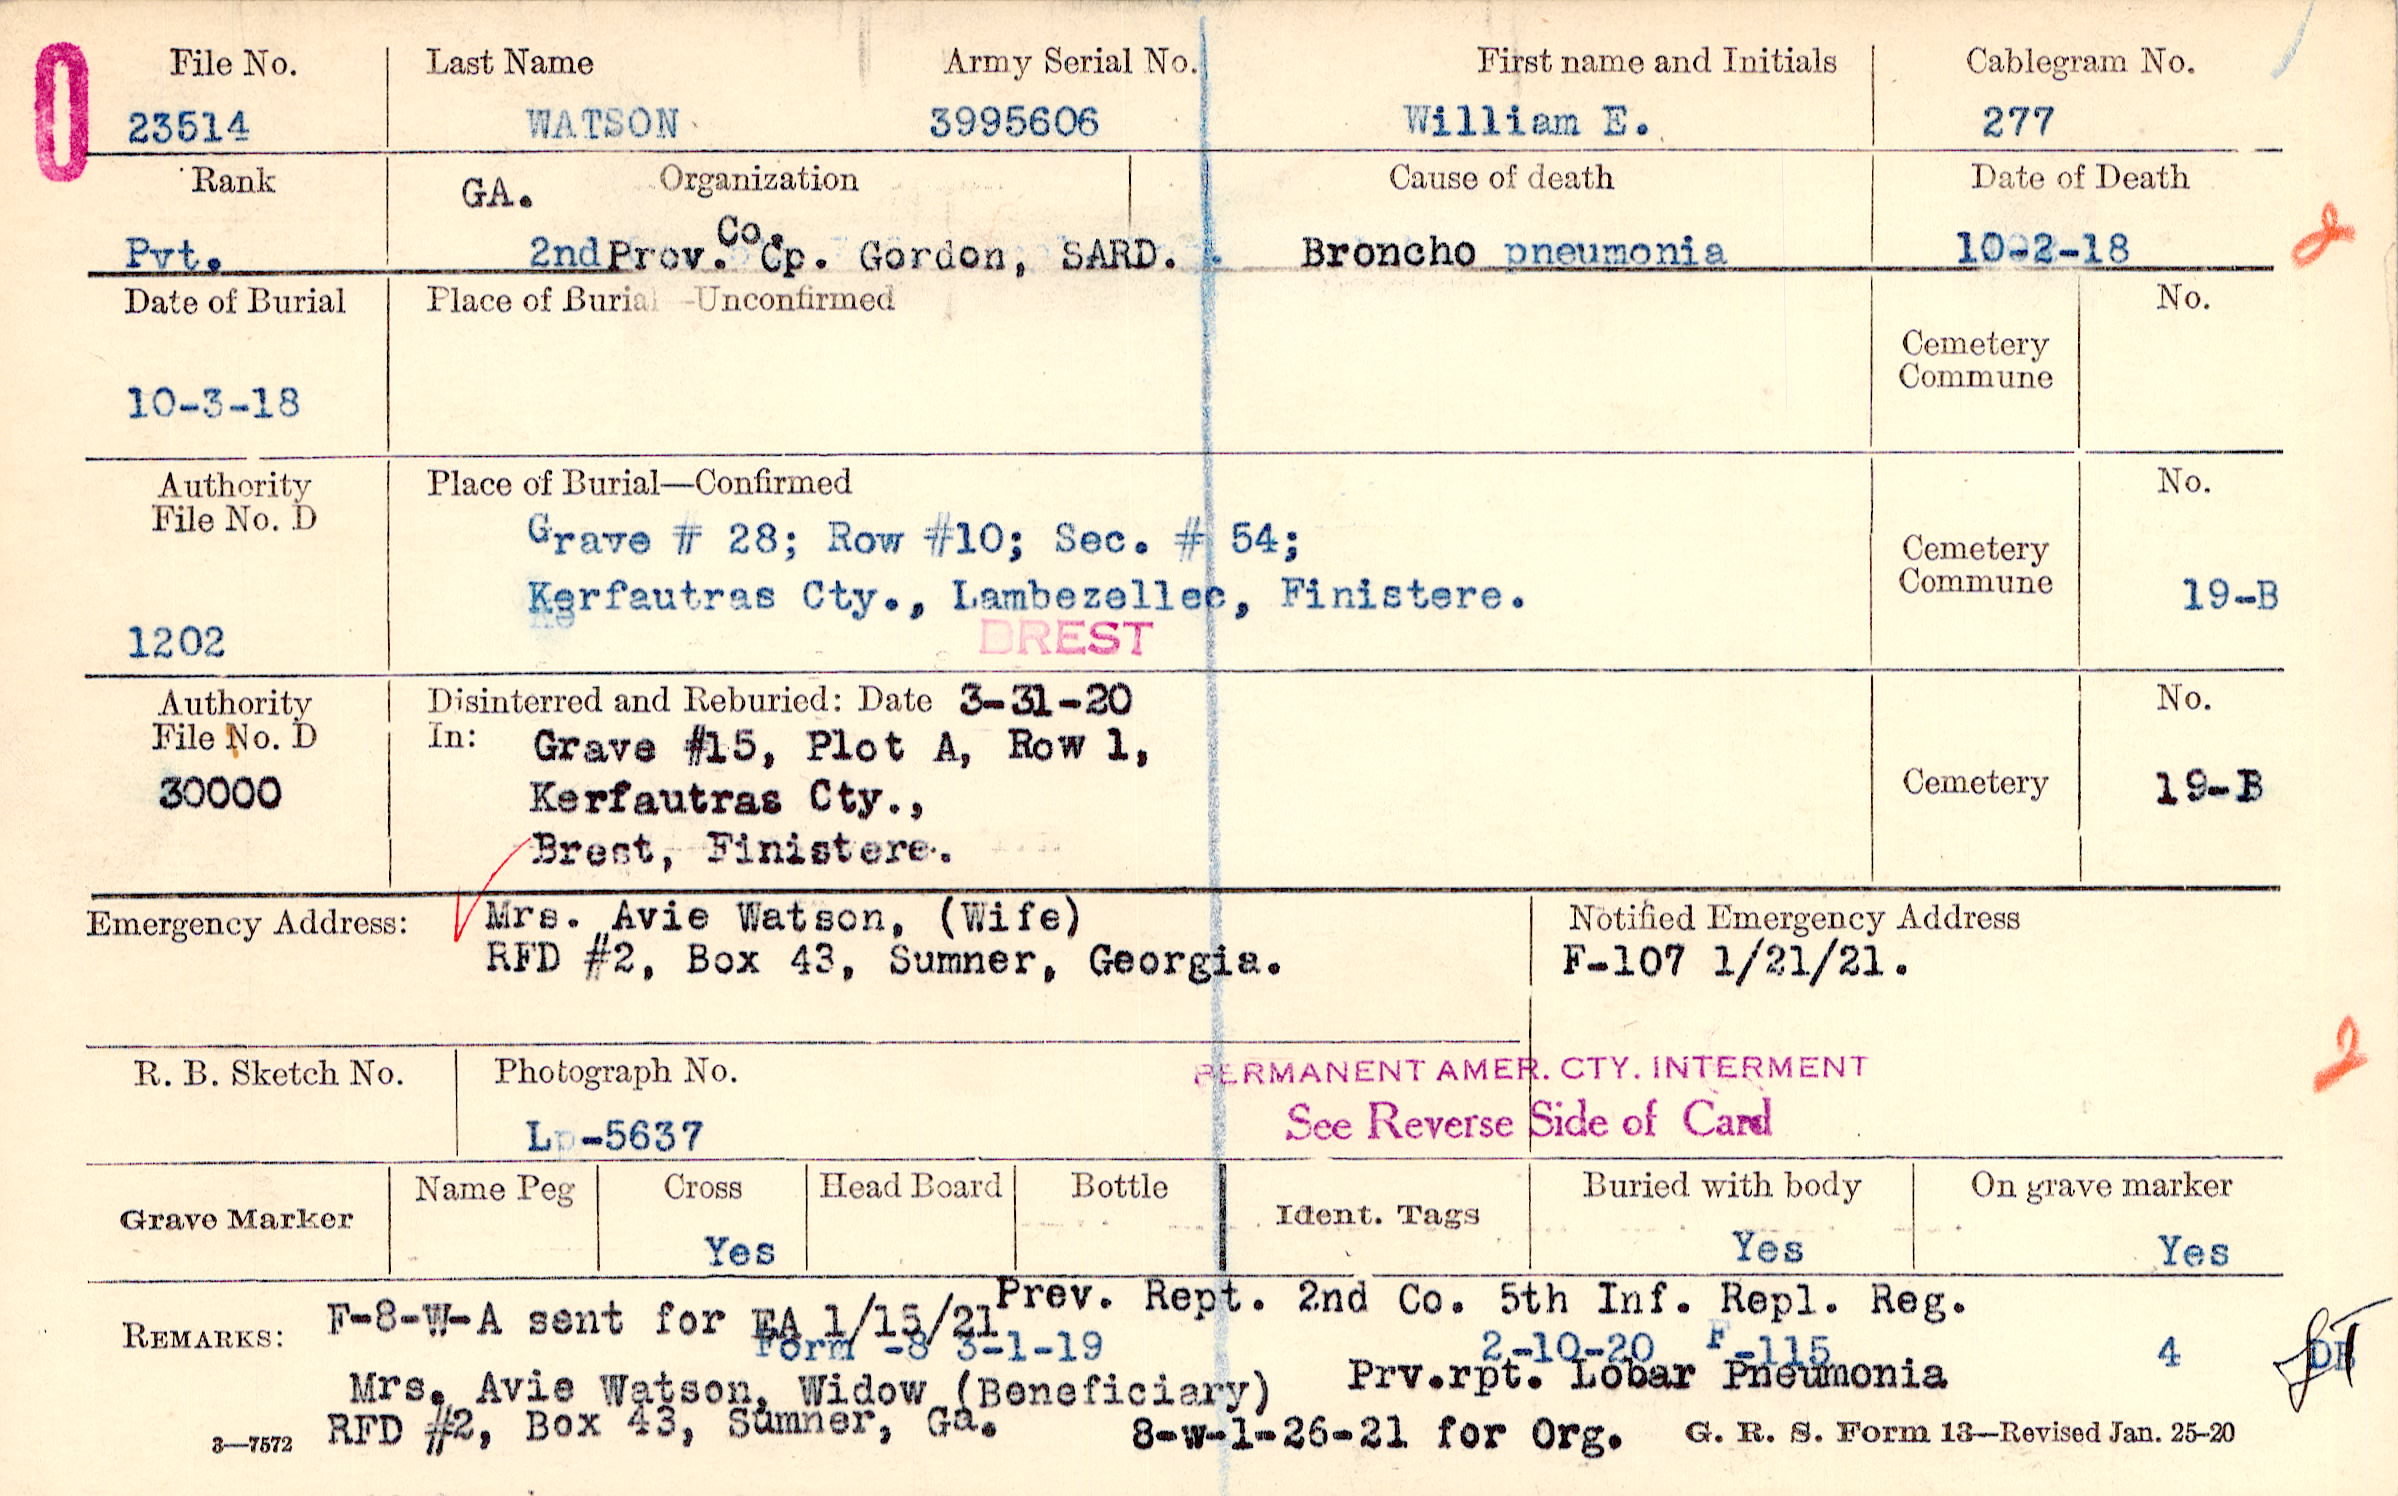 File No. Last Name Army Serial No. First name and Initials Cablegram No.
23514 WATSON 3995606 William E. 277
Rank GA. Organization Cause of death Date of Death
Pvt. 2nd Prov. Co. Cp. Gordon, SARD. Broncho pneumonia 10-2-18
Date of Burial Place of Burial—Unconfirmed No.
Cemetery
Commune
10-3-18
Authority Place of Burial—Confirmed No.
File No. D
Grave # 28; Row #10; Sec. # 54;
Cemetery
Commune
Kerfautras Cty., Lambezellec, Finistere. 19-B
1202 BREST
Authority Disinterred and Reburied: Date 3-31-20 No.
File No. D In: Grave #15, Plot A, Row 1,
30000 Kerfautras Cty., Cemetery 19-B
Brest, Finistere.
Emergency Address: Mrs. Avie Watson, (Wife) Notified Emergency Address
RFD #2, Box 43, Sumner, Georgia. F-107 1/21/21.
R. B. Sketch No. Photograph No. PERMANENT AMER. CTY. INTERMENT
See Reverse Side of Card
L -5637
Grave Marker Name Peg Cross Head Board Bottle Ident. Tags Buried with body On grave marker
Yes Yes Yes
Prev. Rept. 2nd Co. 5th Inf. Repl. Reg.
REMARKS: F-8-W-A sent for EA 1/15/21
Form -8 3-1-19 2-10-20 F-115 4
Mrs. Avie Watson, Widow (Beneficiary) Prv.rpt. Lobar Pneumonia
RFD #2, Box 43, Sumner, Ga. 8-w-1-26-21 for Org.
3—7572 G. R. S. Form 13—Revised Jan. 25-20
2
2